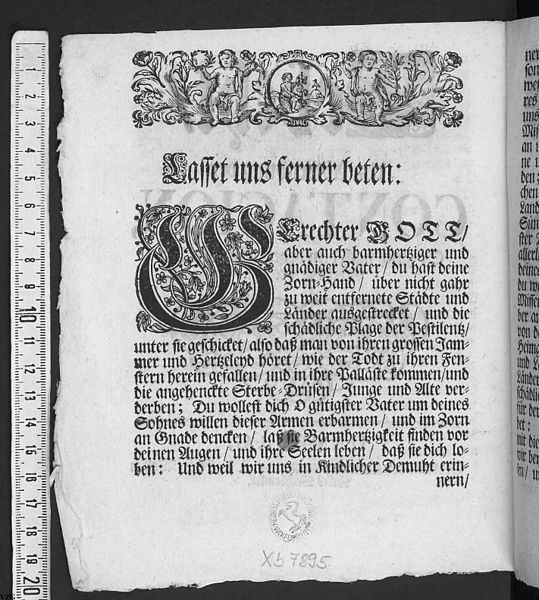 Lasset uns ferner beten:
GErechter GOTT/
aber auch barmhertziger und
gnädiger Vater/ du hast deine
Zorn-Hand/ über nicht gahr
zu weit entfernete Städte und
Länder ausgestrecket/ und die
schädliche Plage der Pestilentz/
unter sie geschicket/ also daß man von ihren grossen Jam-
mer und Hertzeleyd höret/ wie der Todt zu ihren Fen-
stern herein gefallen/ und in ihre Palläste kommen/und
die angehenckte Sterbe-Drüsen/ Junge und Alte ver-
derben; Du wollest dich O gütigster Vater um deines
Sohnes willen dieser Armen erbarmen/ und im Zorn
an Gnade dencken/ laß sie Barmhertzigkeit finden vor
deinen Augen/ und ihre Seelen leben/ daß sie dich lo-
ben: Und weil wir uns in Kindlicher Demuht erin-
nern/
Xb 7895
1
2
3
4
5
6
7
8
9
10
11
12
13
14
15
16
17
18
19
20